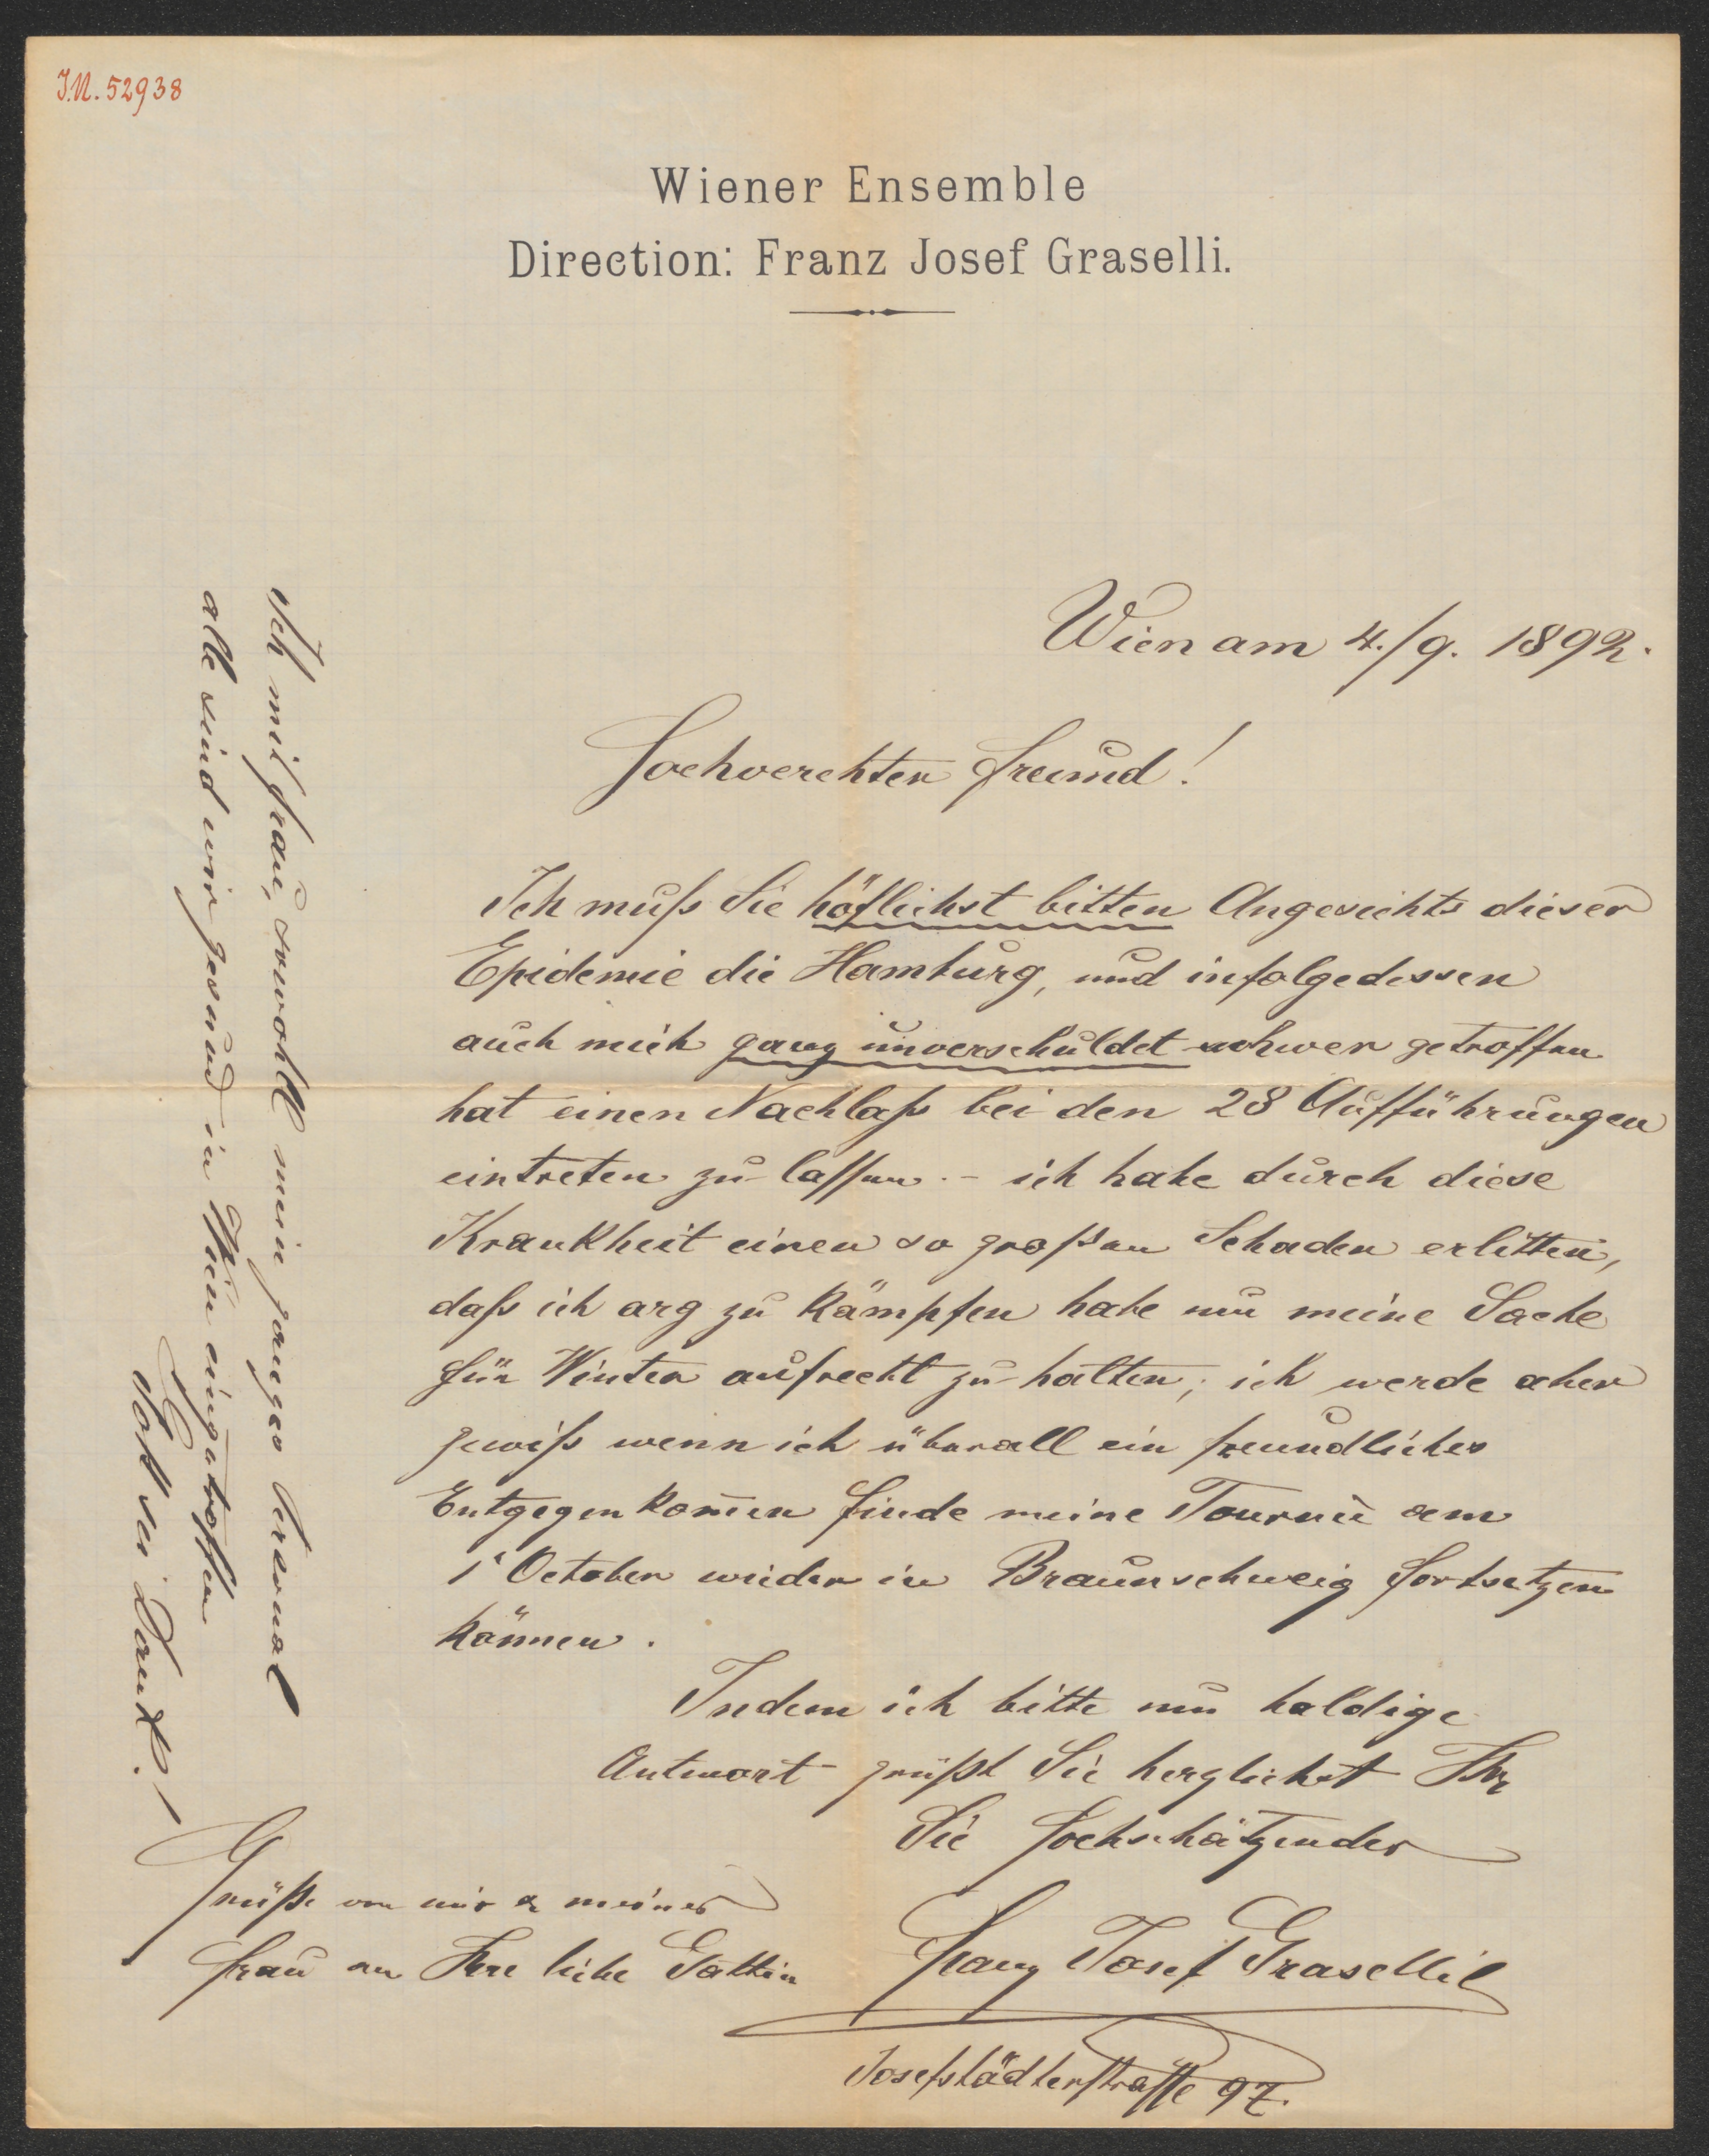 I.N. 52938
Wiener Ensemble
Direction: Franz Josef Graselli.
Wien am 4./9. 1892.
Hochverehrter Freund!
Ich muß Sie höflichst bitten Angesichts dieser
Epidemie die Hamburg, und infolgedessen
auch mich ganz unverschuldet schwer getroffen
hat einen Nachlaß bei den 28 Aufführungen
eintreten zu lassen. – ich habe durch diese
Krankheit einen so großen Schaden erlitten,
daß ich arg zu kämpfen habe um meine Sache
für Winter aufrecht zu halten; ich werde aber
gewiß wenn ich überall ein freundliches
Entgegenkom̄en finde meine Tourneé am
1t October wieder in Braunschweig fortsetzen
können.
Indem ich bitte um baldige
Antwort grüßt Sie herzlichst Ihr
Sie Hochschätzender
Franz Josef Graselli
Josefstädterstrasse 97.
Grüße von mir & meiner
Frau an Ihre liebe Gattin
Ich mit Frau, sowohl mein ganzes Personal
alle sind wir gesund in Wien eingetroffen
Gott sei Dank!